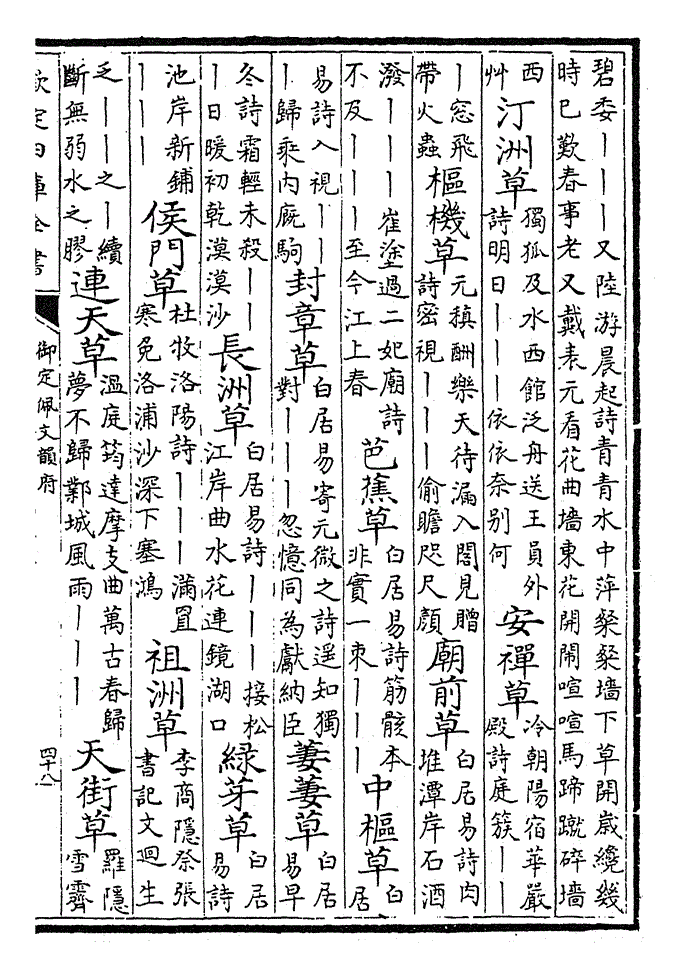 碧委｜｜｜又陸游晨起詩青青水中萍粲粲墻下草開歲纔幾
時已歎春事老又戴表元看花曲墻東花開鬧喧喧馬蹄蹴碎墻
西
艸
汀洲草
獨孤及水西館泛舟送王員外
詩明日｜｜｜依依奈别何
安禪草
冷朝陽宿華嚴
殿詩庭簇｜｜
｜窓飛
帶火蟲
樞機草
元稹酬樂天待漏入閤見贈
詩密視｜｜｜偷瞻咫尺顔
廟前草
白居易詩肉
堆潭岸石酒
潑｜｜｜崔塗過二妃廟詩
不及｜｜｜至今江上春
芭蕉草
白居易詩筋骸本
非實一束｜｜｜
中樞草
白
居
易詩入視｜｜
｜歸乘内廐駒
封章草
白居易寄元微之詩遥知獨
對｜｜｜忽憶同為獻納臣
萋萋草
白居
易早
冬詩霜輕未殺｜｜
｜日暖初乾漠漠沙
長洲草
白居易詩｜｜｜接松
江岸曲水花連鏡湖口
緑芽草
白居
易詩
池岸新鋪
｜｜｜
侯門草
杜牧洛陽詩｜｜｜滿置
寒兔洛浦沙深下塞鴻
祖洲草
李商隱祭張
書記文廻生
乏｜｜之｜續
斷無弱水之膠
連天草
温庭筠達摩支曲萬古春歸
夢不歸鄴城風雨｜｜｜
天街草
羅隱
雪霽
欽定四庫全書
御定佩文韻府
四十八